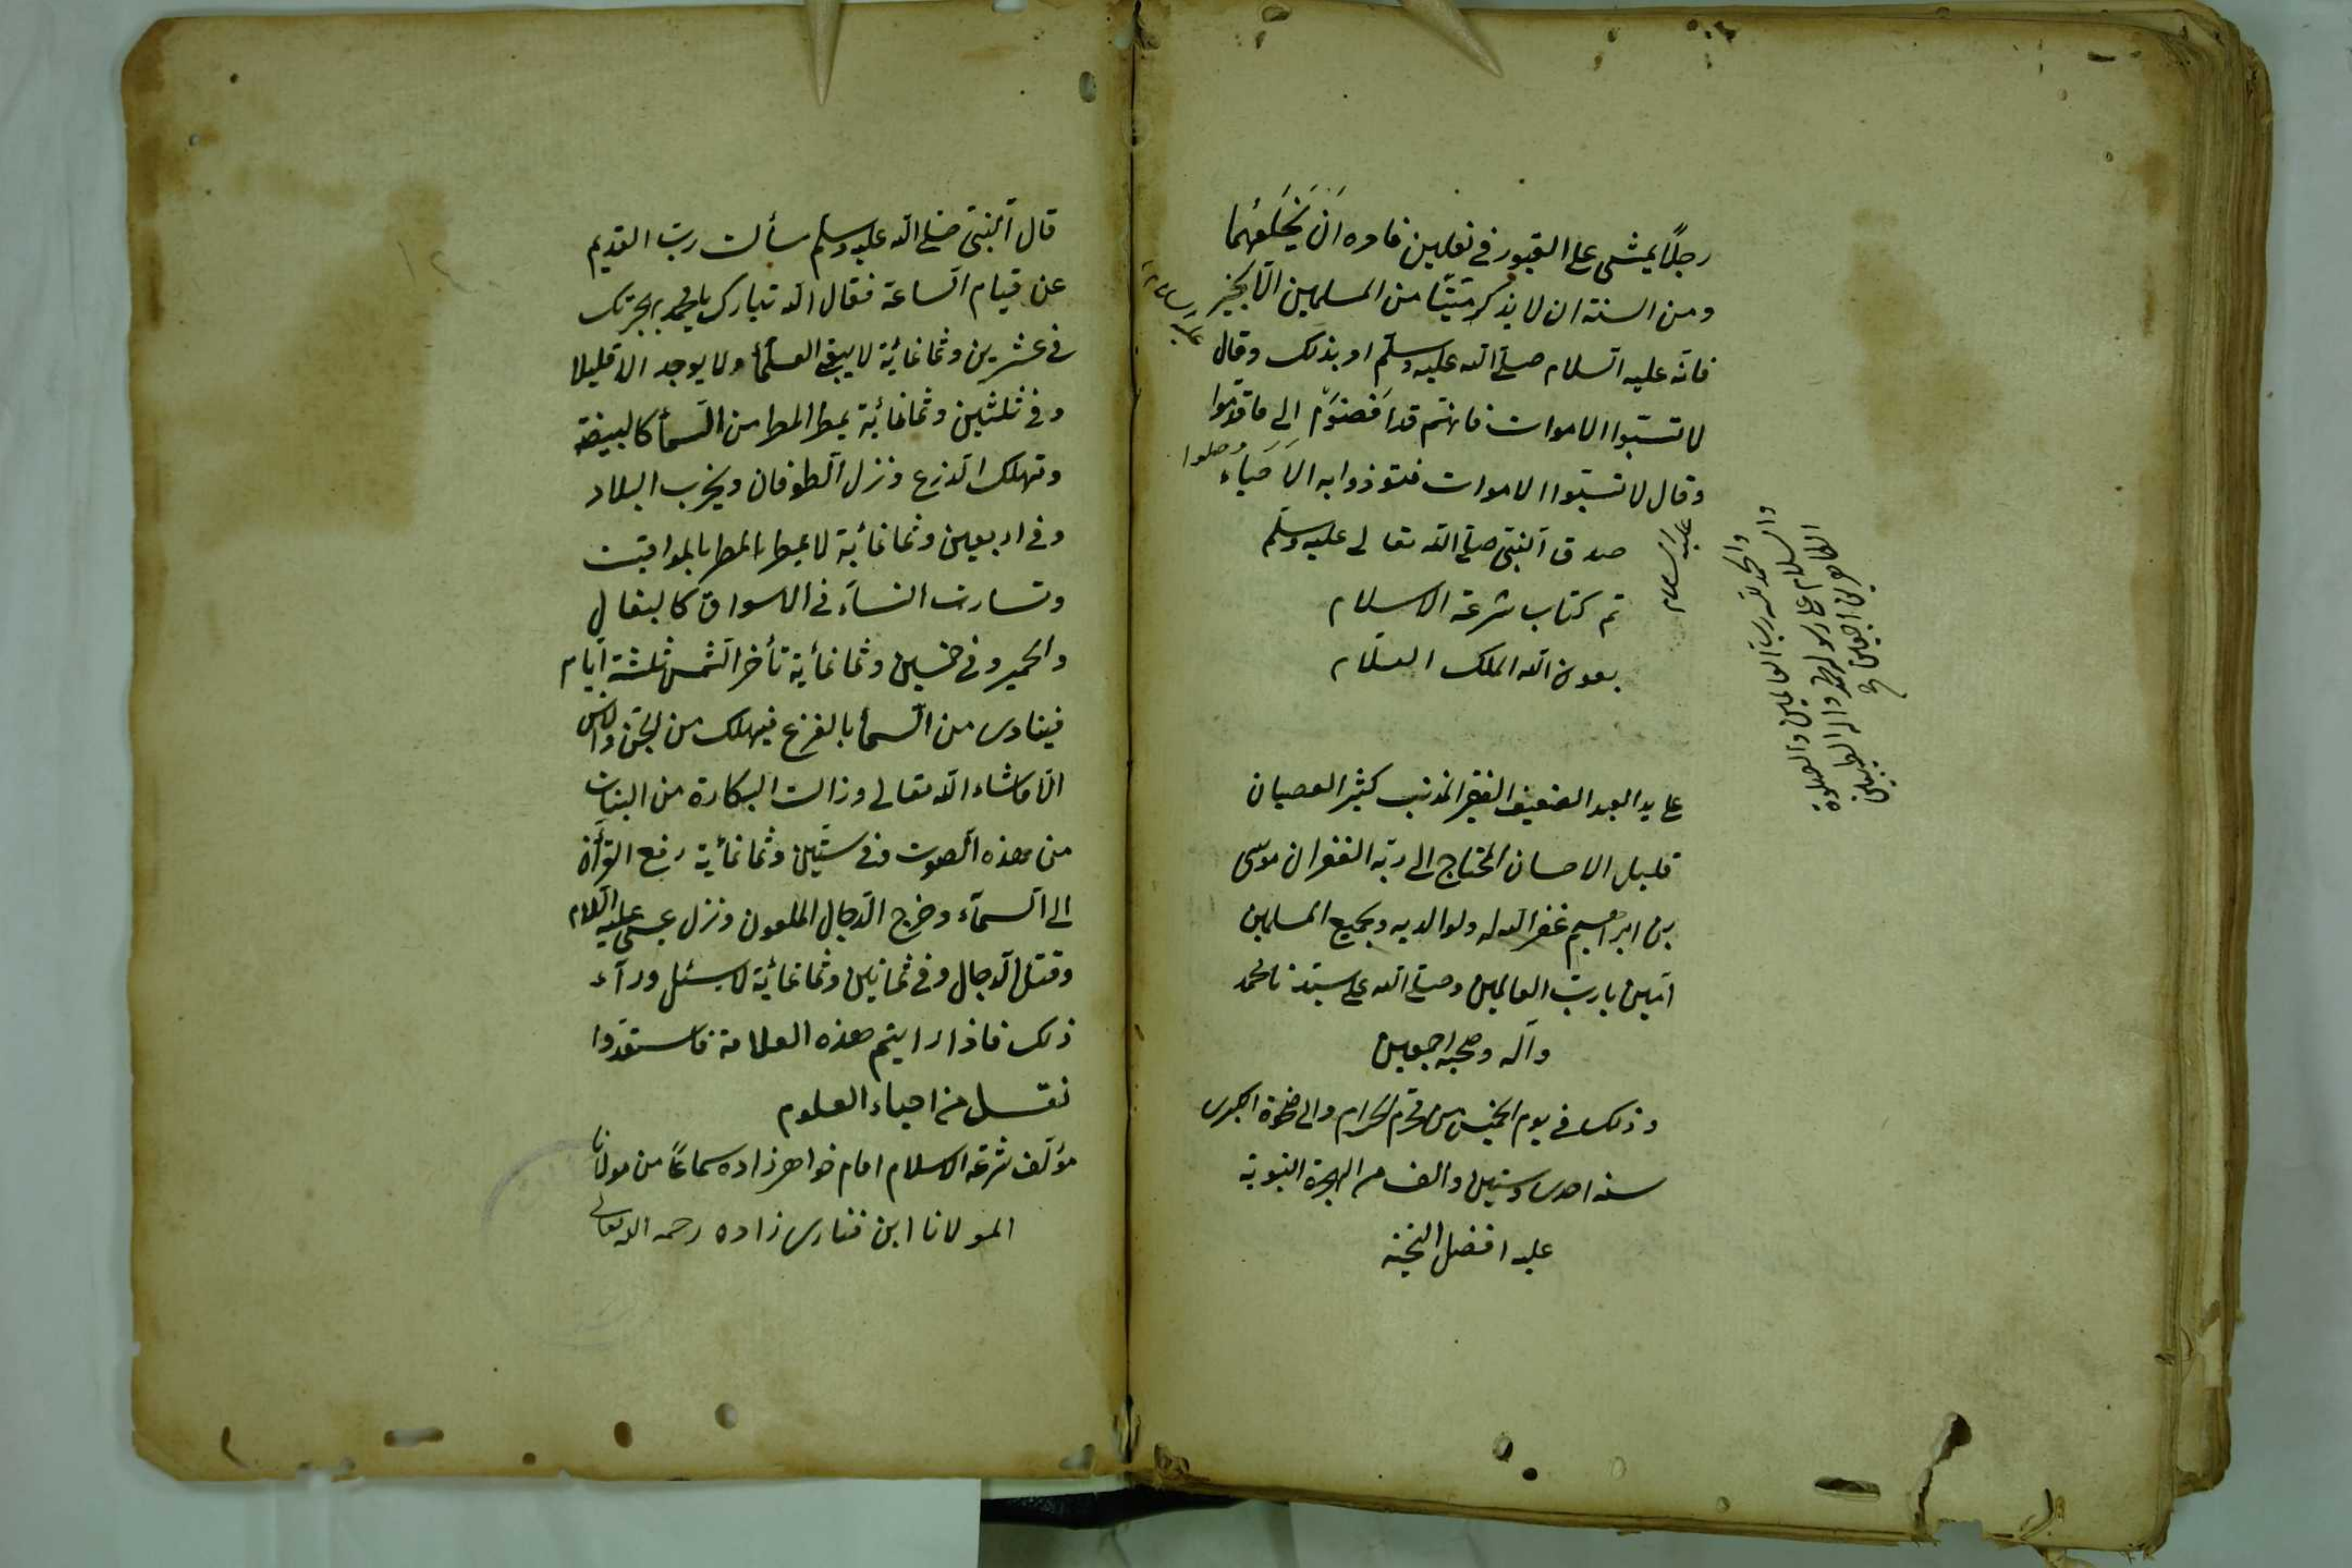 رجلًا يمشى على القبور فى نعلين فامره اَنْ يَخْلَعَهُمَا
ومن السنة ان لا يذكر ميّتًا من المسلمين الّا بخير
فانّه عليه السّلام صلى الله عليه وسلّم امر بذلك وقال
لا تسبّوا الاموات فانهم قد اَفضَوا الى ما قدّموا
وقال لا تسبّوا الاموات فتؤذوا به الاَحْيَاء
صدق النبىّ صلى الله تعالى عليه وسلّم
تم كتاب شرعة الاسلام
بعون الله الملك العلّام
على يد العبد الضعيف الفقير المذنب كثير العصيان
قليل الاحسان المحتاج الى ربّه الغفران موسى
بن ابراهيم غفر الله له ولوالديه ولجميع المسلمين
امين يا ربّ العالمين وصلى الله على سيّدنا محمد
وآله وصحبه اجمعين
وذلك فى يوم الخميس من محرم الحرام والى ضحوة الكبرى
سنه احدى وستين والف من الهجرة النبويّة
عليه افضل التحيّة
عليه السلام
والحمد لله ربّ العالمين والصلوة
والسلام على رسوله محمد واله الطيبين
الطاهرين اجمعين
قال النّبىّ صلى الله عليه وسلم سألت ربّ القديم
عن قيام السّاعة فقال الله تبارك يا محمد بهجرتك
فى عشرين وثمانمائية لا يبقى العلماء ولا يوجد الا قليلا
وفى ثلثين وثمانمائية يمطر المطر من السّماء كالبيضة
وتهلك الزرع ونزل الطوفان ويخرب البلاد
وفى اربعين وثمانمائية لا يمطر المطر بالمواقيت
وتسارت النساء فى الاسواق كالبغال
والحمير وفى خمسين وثمانمأية تأخر الشّمس ثلثة ايّام
فينادى من السّماء بالفزع فيهلك من الجنّ والناس
الّا ماشاء الله تعالى وزالت البكارة من البنات
من هذه الصوت وفى ستّين وثمانمأية رفع القرأن
الى السّمآء وخرج الدّجال الملعون ونزل عيسى عليه السّلام
وقتل الدّجال وفى ثمانين وثمانمائية لا يسئل ورآء
ذلك فاذا رايتم هذه العلامة فاستعدّوا
نقل من احياء العلوم
مؤلف شرعة الاسلام امام خواهرزاده سماعًا من مولانا
المولانا ابن فنارى زاده رحمه الله تعالى